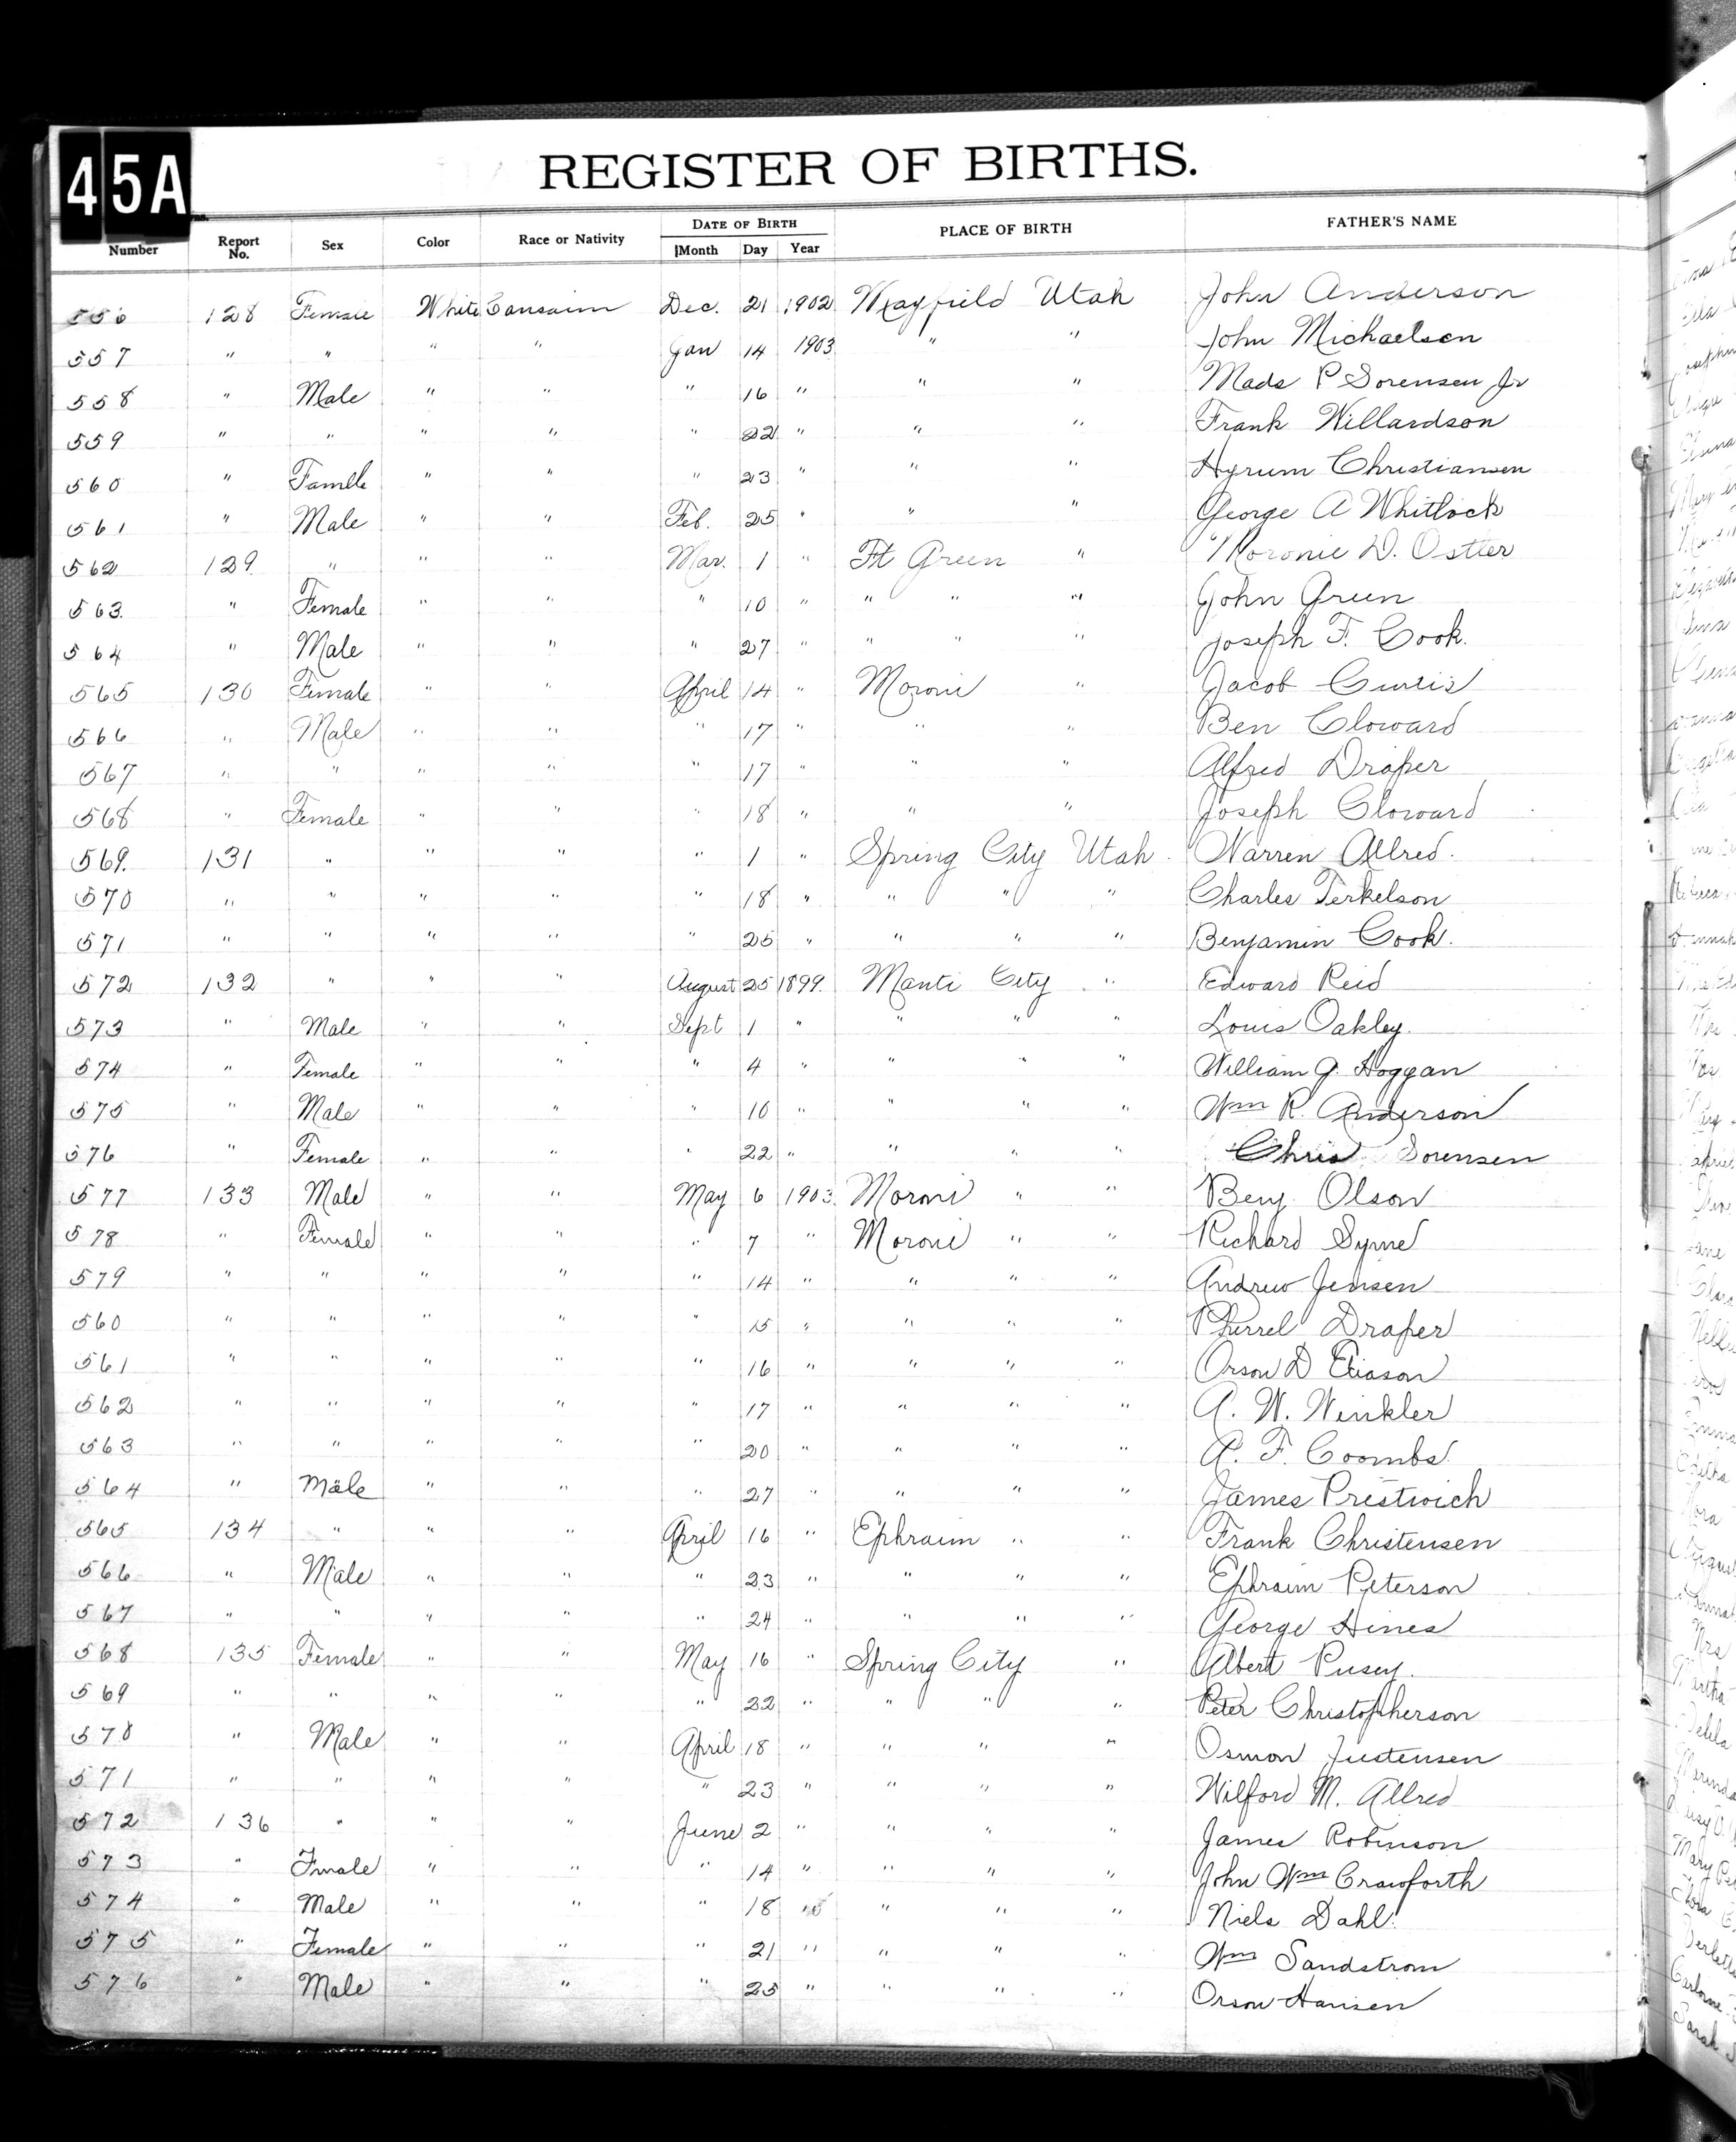 45A
REGISTER OF BIRTHS.
Number Report No. Sex Color Race or Nativity DATE OF BIRTH Month Day Year PLACE OF BIRTH FATHER'S NAME
556 128 Female White Dec. 21 1902 Mayfield Utah John Anderson
557 " " " " Jan 14 1903 " " John Michaelsen
558 " Male " " " 16 " " " Mads P Sorensen Jr
559 " " " " " 22 " " " Frank Willardson
560 " Famlle " " " 23 " " " Hyrum Christiansen
561 " Male " " Feb. 25 " " " George A Whitlock
562 129 " " " Mar. 1 " Ft Green " Moronie D. Ostler
563. " Female " " " 10 " " " " John Green
564 " Male " " " 27 " " " " Joseph F. Cook.
565 130 Female " " April 14 " Moroni " Jacob Curtis
566 " Male " " " 17 " " " Ben Cloward
567 " " " " " 17 " " " Alfred Draper
568 " Female " " " 18 " " " Joseph Cloward
569. 131 " " " " 1 " Spring City Utah. Warren Allred.
570 " " " " " 18 " " " " Charles Terkelson
571 " " " " " 25 " " " " Benjamin Cook.
572 132 " " " August 25 1899. Manti City " Edward Reid
573 " Male " " Sept 1 " " " " Louis Oakley.
574 " Female " " " 4 " " " " William G. Hoggan
575 " Male " " " 10 " " " " Wm R. Anderson
576 " Female " " " 22 " " " " Chris Sorensen
577 133 Male " " May 6 1903. Moroni " " Benj. Olson
578 " Female " " " 7 " Moroni " " Richard Syme
579 " " " " " 14 " " " " Andrew Jensen
560 " " " " " 15 " " " " Draper
561 " " " " " 16 " " " " Orson D Eliason
562 " " " " " 17 " " " " A. W. Winkler
563 " " " " " 20 " " " " A. F. Coombs.
564 " Male " " " 27 " " " " James Prestwich
565 134 " " " April 16 " Ephraim " " Frank Christensen
566 " Male " " " 23 " " " " Ephraim Peterson
567 " " " " " 24 " " " " George Hines
568 135 Female " " May 16 " Spring City " Albert Pusey.
569 " " " " " 22 " " " " Peter Christopherson
570 " Male " " April 18 " " " " Osmon Justensen
571 " " " " " 23 " " " " Wilford M. Allred
572 136 " " " June 2 " " " " James Robinson
573 " Fmale " " " 14 " " " " John Wm Crawforth
574 " Male " " " 18 " " " " Niels Dahl.
575 " Female " " " 21 " " " " Wm Sandstrom
576 " Male " " " 25 " " " " Orson Hansen